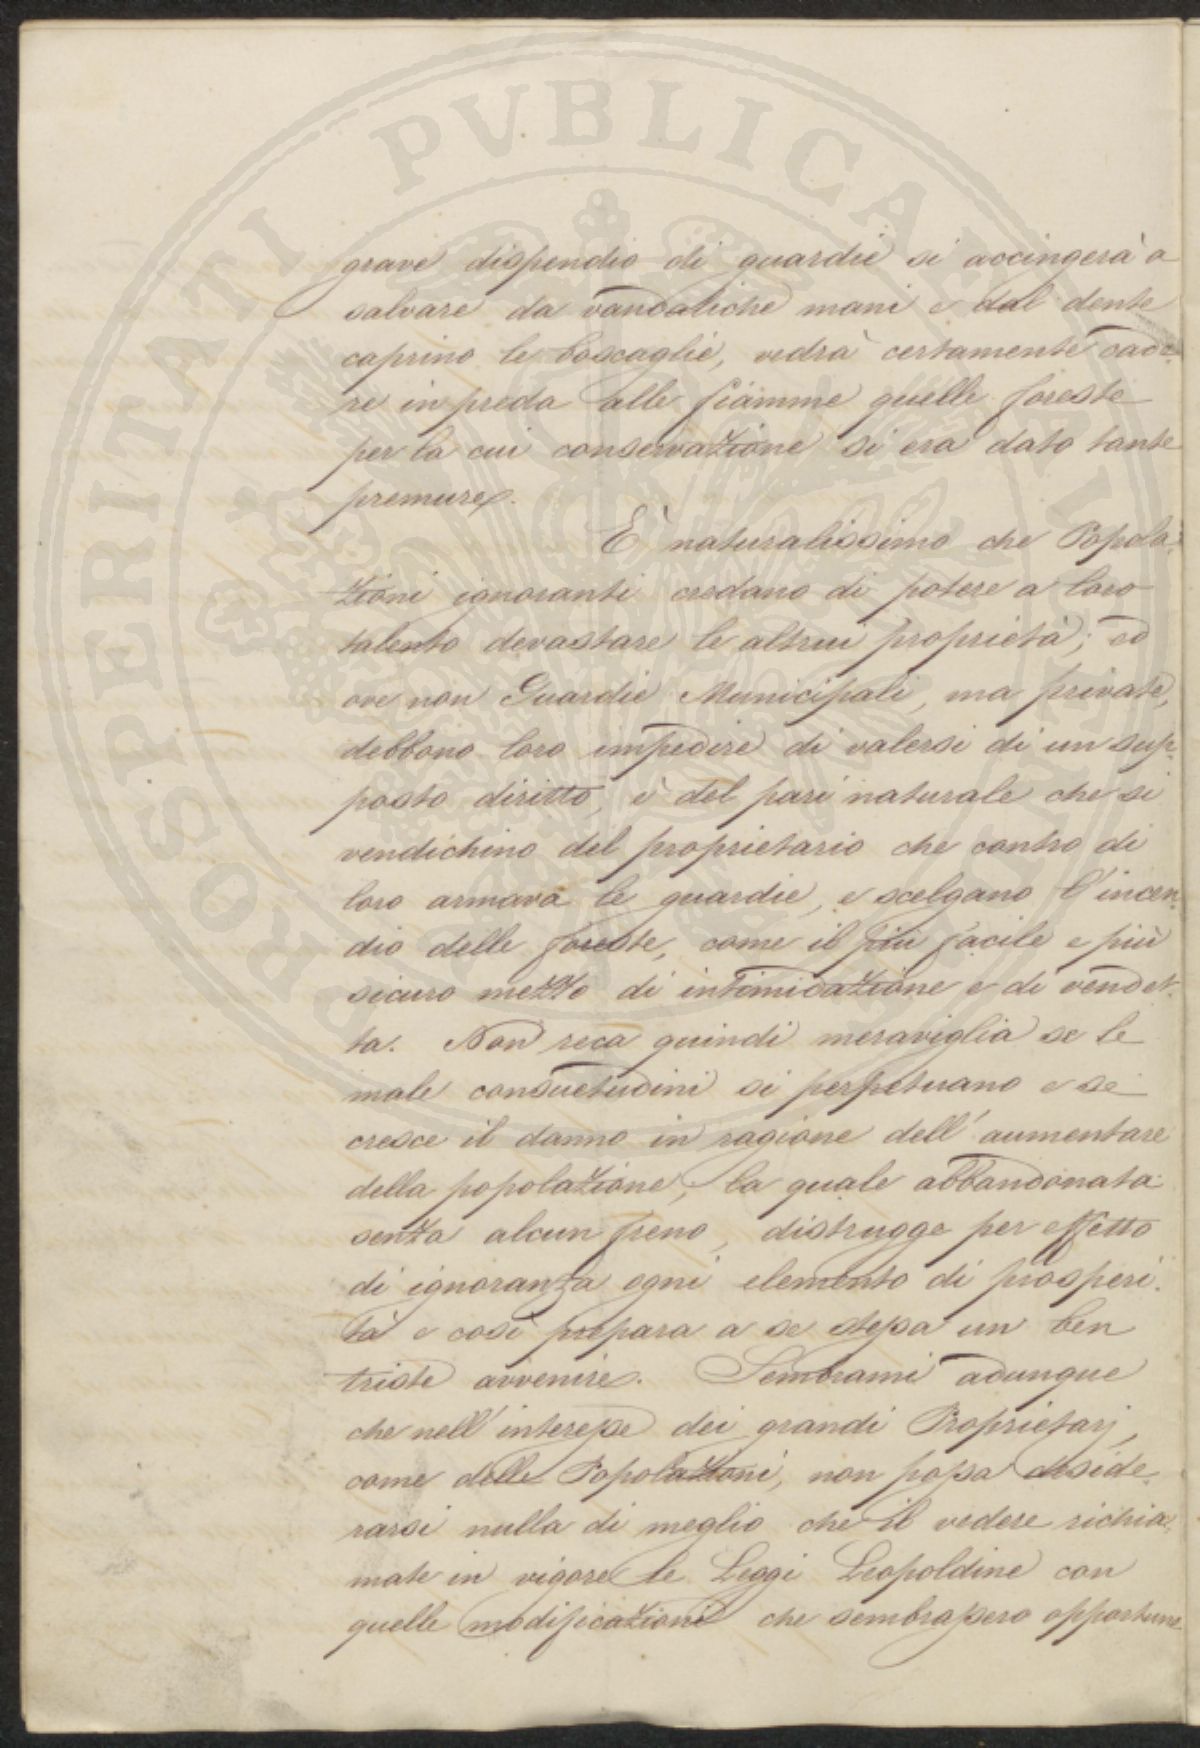 PROSPERITATI PUBLICAE
grave dispendio di guardie si accingerà a
salvare da vandaliche mani e dal dente
caprino le boscaglie, vedrà certamente cade-
re in preda alle fiamme quelle foreste
per la cui conservazione si era dato tante
premure.
È naturalissimo che Popola-
zioni ignoranti credano di potere a loro
talento devastare le altrui proprietà; ed
ove non Guardie Municipali, ma private,
debbono loro impedire di valersi di un sup-
posto diritto, è del pari naturale che si
vendichino del proprietario che contro di
loro armava le guardie, e scelgano l'incen-
dio delle foreste, come il più facile e più
sicuro mezzo di intimidazione e di vendet-
ta. Non reca quindi meraviglia se le
male consuetudini si perpetuano e se
cresce il danno in ragione dell'aumentare
della popolazione, la quale abbandonata
senza alcun freno, distrugge per effetto
di ignoranza ogni elemento di prosperi-
tà e così prepara a se stessa un ben
triste avvenire. Sembrami adunque
che nell'interesse dei grandi Proprietarj,
come delle Popolazioni, non possa deside-
rarsi nulla di meglio che il vedere richia-
mate in vigore le Leggi Leopoldine con
quelle modificazioni che sembrassero opportune